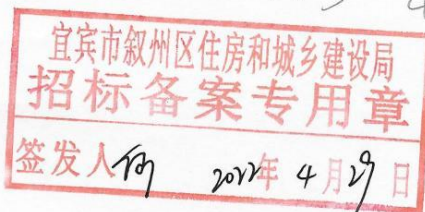 宜宾市叙州区住房和城乡建设局
招标备案专用章
签发人 2022年4月29日